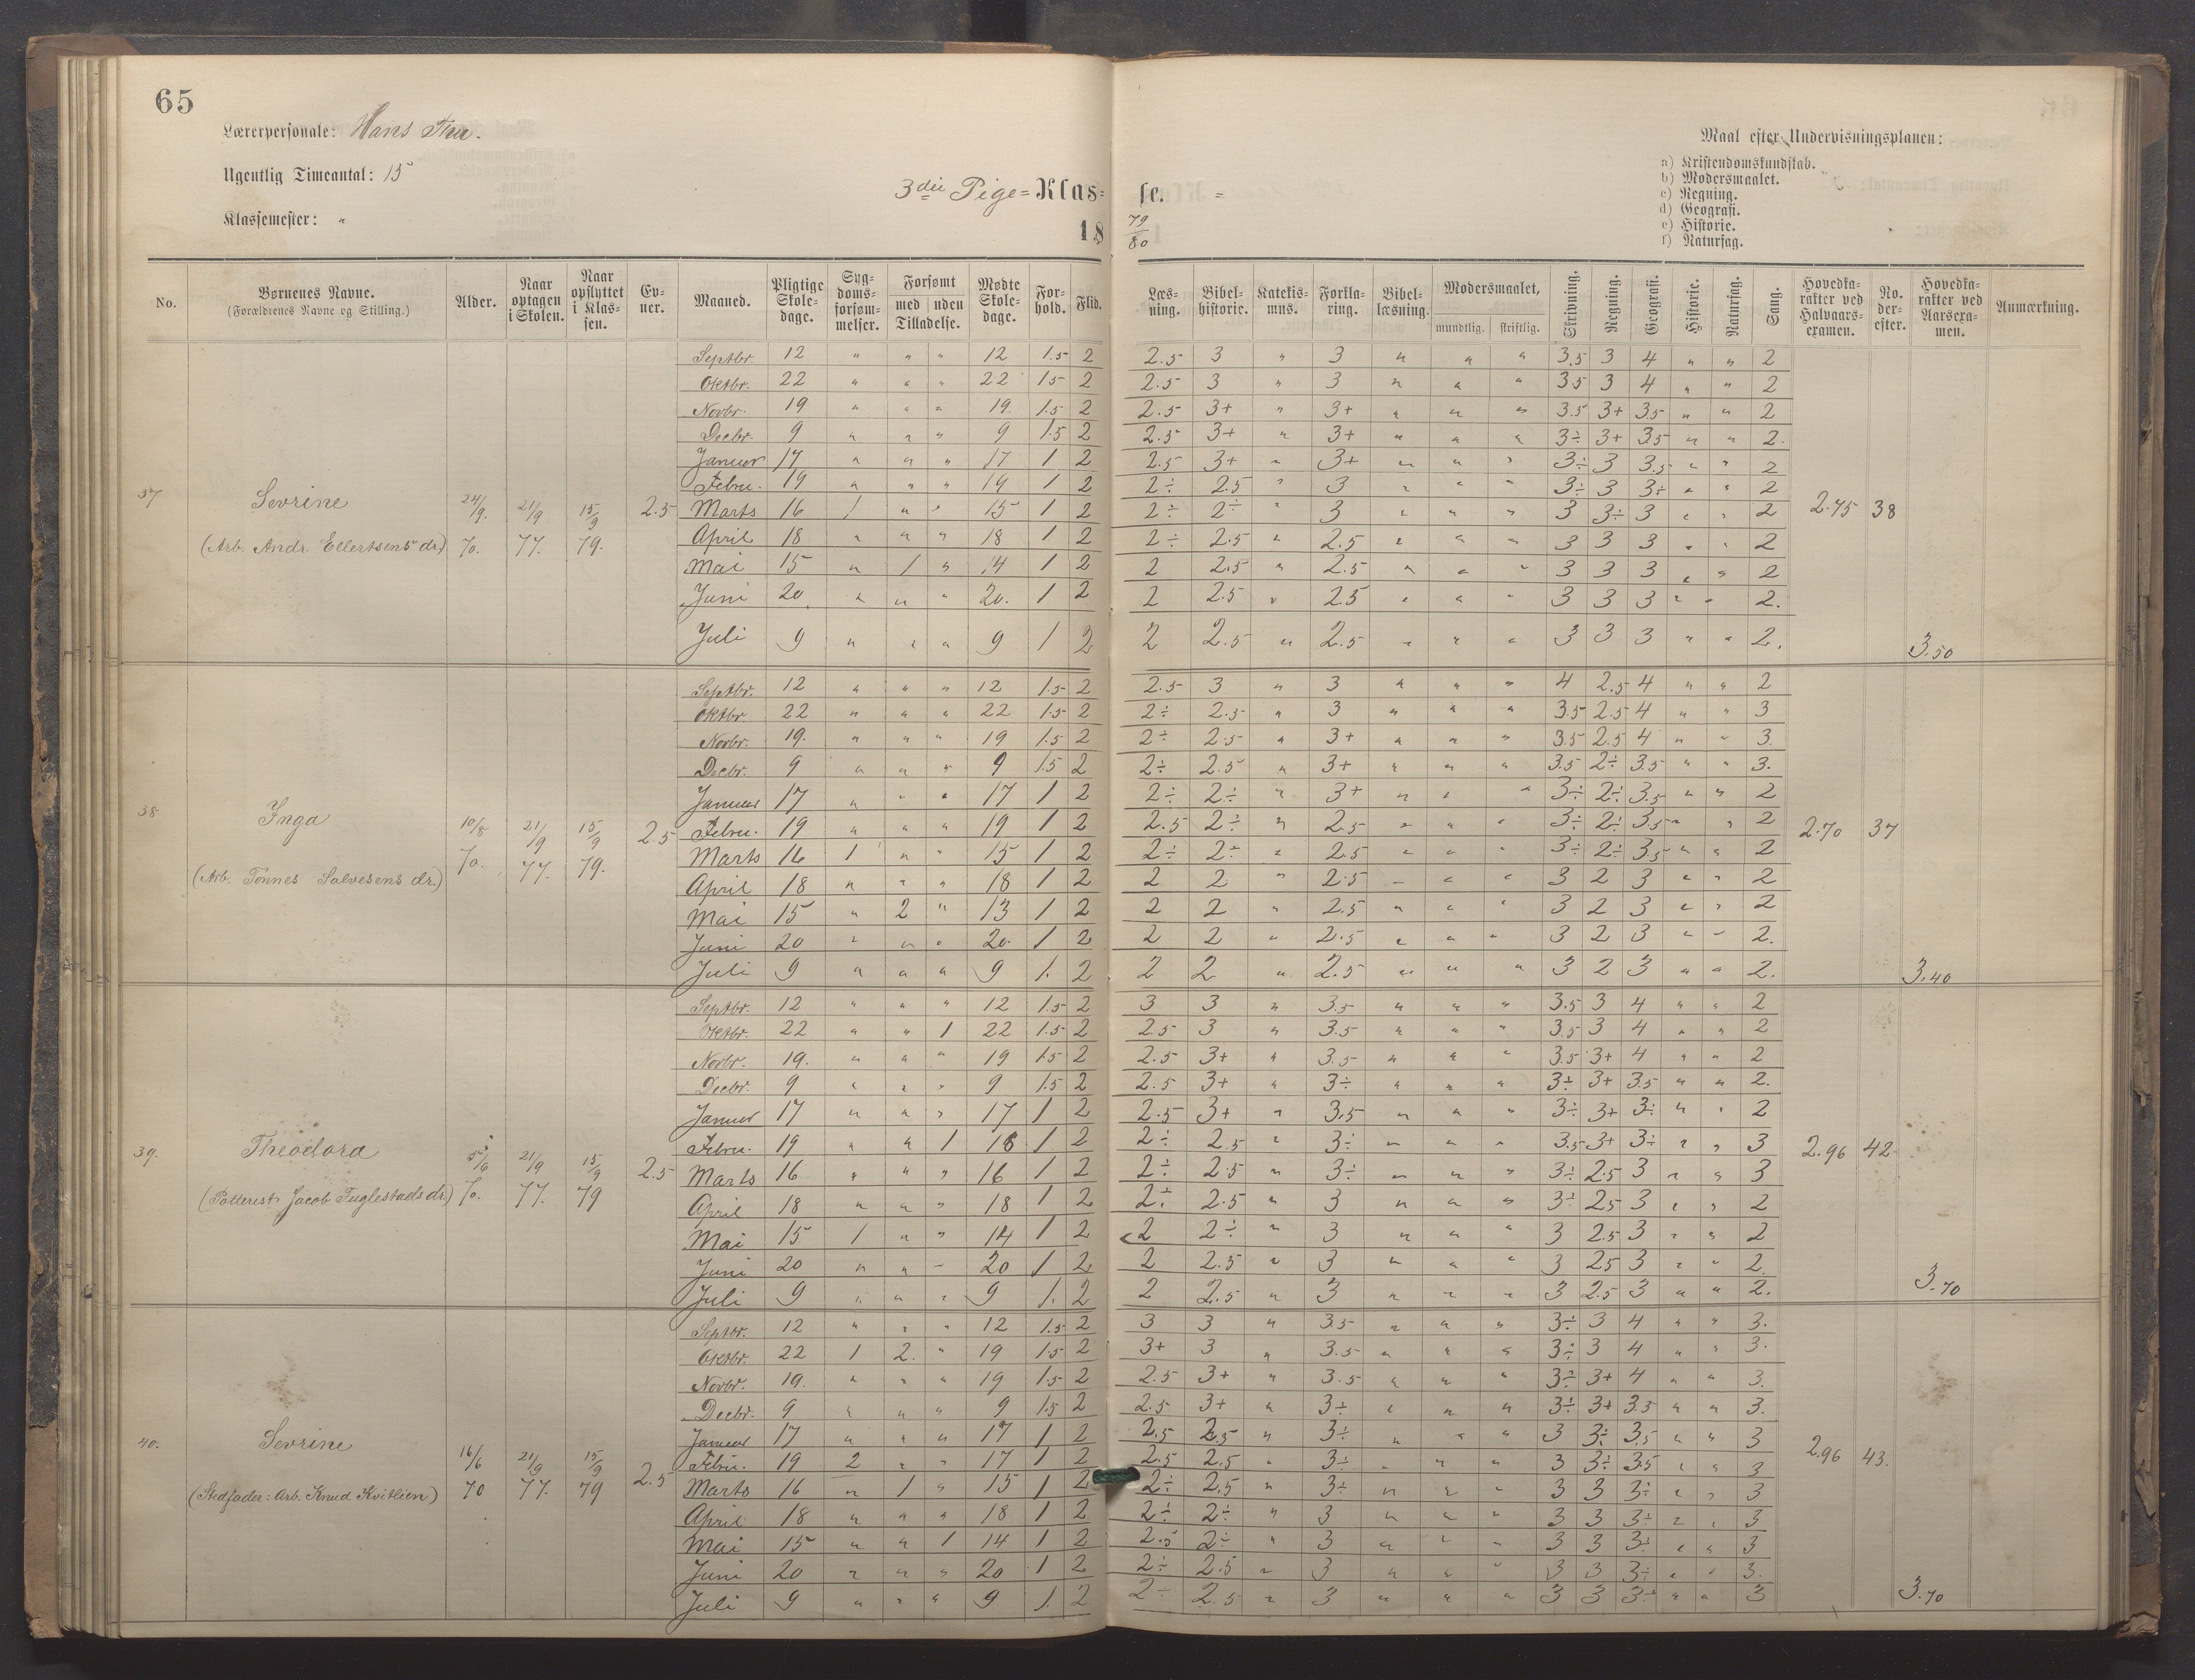 65
Lærerpersonale: Hans Thu.
Ugentlig Timeantal: 15
Klassemester: „
3die Pige= Klas= se.
18 79/80
Maal efter Undervisningsplanen:
a) Kristendomskundskab.
b) Modersmaalet.
c) Regning.
d) Geografi.
e) Historie.
f) Naturfag.
No. Børnenes Navne. (Forældrenes Navne og Stilling.) Alder. Naar optagen i Skolen. Naar opflyttet i Klassen. Evner. Maaned. Pligtige Skoledage. Sygdomsforsømmelser. Forsømt med uden Tilladelse. Mødte Skoledage. Forhold. Flid. Læsning. Bibelhistorie. Katekismus. Forklaring. Bibellæsning. Modersmaalet, mundtlig. skriftlig. Skrivning. Regning. Geografi. Historie. Naturfag. Sang. Hovedkarakter ved Halvaarsexamen. No. derefter. Hovedkarakter ved Aarsexamen. Anmærkning.
37 Sevrine (Arb. Andr. Ellertsens dr.) 24/9. 70. 21/9 77. 15/9 79. 2.5
Septbr. 12 „ „ „ 12 1.5 2 2.5 3 „ 3 „ „ „ 3.5 3 4 „ „ 2
Oktbr. 22 „ „ „ 22 1.5 2 2.5 3 „ 3 „ „ „ 3.5 3 4 „ „ 2
Novbr. 19 „ „ „ 19. 1.5 2 2.5 3+ „ 3+ „ „ „ 3.5 3+ 3.5 „ „ 2
Decbr. 9 „ „ „ 9 1.5 2 2.5 3+ „ 3+ „ „ „ 3÷ 3+ 3.5 „ „ 2.
Januar 17 „ „ „ 17 1 2 2.5 3+ „ 3+ „ „ „ 3÷ 3 3.5 „ „ 2
Febru. 19 „ „ „ 19 1 2 2÷ 2.5 „ 3 „ „ „ 3÷ 3 3÷ „ „ 2
Marts 16 1 „ „ 15 1 2 2÷ 2÷ „ 3 „ „ „ 3 3÷ 3 „ „ 2 2.75 38
April 18 „ „ „ 18 1 2 2÷ 2.5 „ 2.5 „ „ „ 3 3 3 „ „ 2
Mai 15 „ 1 „ 14 1 2 2 2.5 „ 2.5 „ „ „ 3 3 3 „ „ 2
Juni 20 „ „ „ 20. 1 2 2 2.5 „ 2.5 „ „ „ 3 3 3 „ „ 2.
Juli 9 „ „ „ 9 1 2 2 2.5 „ 2.5 „ „ „ 3 3 3 „ „ 2. 3.50
38 Inga (Arb. Tønnes Salvesens dr.) 10/8 70. 21/9 77. 15/9 79. 2.5
Septbr. 12 „ „ „ 12 1.5 2 2.5 3 „ 3 „ „ „ 4 2.5 4 „ „ 2
Oktbr. 22 „ „ „ 22 1.5 2 2÷ 2.5 „ 3 „ „ „ 3.5 2.5 4 „ „ 3
Novbr. 19. „ „ „ 19 1.5 2 2÷ 2.5 „ 3+ „ „ „ 3.5 2.5 4 „ „ 3.
Decbr. 9 „ „ „ 9 1.5 2 2÷ 2.5 „ 3+ „ „ „ 3.5 2÷ 3.5 „ „ 3.
Januar 17 „ „ „ 17 1 2 2÷ 2÷ „ 3+ „ „ „ 3÷ 2÷ 3.5 „ „ 2
Febru. 19 „ „ „ 19 1 2 2.5 2÷ „ 2.5 „ „ „ 3÷ 2÷ 3.5 „ „ 2 2.70 37
Marts 16 1 „ „ 15 1 2 2÷ 2÷ „ 2.5 „ „ „ 3÷ 2÷ 3.5 „ „ 2
April 18 „ „ „ 18 1 2 2 2 „ 2.5 „ „ „ 3 2 3 „ „ 2
Mai 15 „ 2 „ 13 1 2 2 2 „ 2.5 „ „ „ 3 2 3 „ „ 2
Juni 20 „ „ „ 20. 1 2 2 2 „ 2.5 „ „ „ 3 2 3 „ „ 2.
Juli 9 „ „ „ 9 1. 2 2 2 „ 2.5 „ „ „ 3 2 3 „ „ 2. 3.40
39. Theodora (Potterist Jacob Fuglestads dr.) 5/6 70. 21/9 77. 15/9 79 2.5
Septbr. 12 „ „ „ 12 1.5 2 3 3 „ 3.5 „ „ „ 3.5 3 4 „ „ 2
Oktbr. 22 „ „ 1 22 1.5 2 2.5 3 „ 3.5 „ „ „ 3.5 3 4 „ „ 2
Novbr. 19. „ „ „ 19 1.5 2 2.5 3+ „ 3.5 „ „ „ 3.5 3+ 4 „ „ 2
Decbr. 9 „ „ „ 9 1.5 2 2.5 3+ „ 3÷ „ „ „ 3÷ 3+ 3.5 „ „ 2.
Januar 17 „ „ „ 17 1 2 2.5 3+ „ 3.5 „ „ „ 3÷ 3+ 3÷ „ „ 2
Febru. 19 „ „ 1 18 1 2 2÷ 2.5 „ 3÷ „ „ „ 3.5 3+ 3÷ „ „ 3 2.96 42
Marts 16 „ „ „ 16 1 2 2÷ 2.5 „ 3÷ „ „ „ 3÷ 2.5 3 „ „ 3
April 18 „ „ „ 18 1 2 2÷ 2.5 „ 3 „ „ „ 3÷ 2.5 3 „ „ 2
Mai 15 1 „ „ 14 1 2 2 2÷ „ 3 „ „ „ 3 2.5 3 „ „ 2
Juni 20 „ „ „ 20 1 2 2 2.5 „ 3 „ „ „ 3 2.5 3 „ „ 2.
Juli 9 „ „ „ 9 1. 2 2 2.5 „ 3 „ „ „ 3 2.5 3 „ „ 2. 3.70
40. Sevrine (Stedfader: Arb. Knud Kvitlien) 16/6 70 21/9 77. 15/9 79 2.5
Septbr. 12 „ „ „ 12 1.5 2 3 3 „ 3.5 „ „ „ 3÷ 3 4 „ „ 3.
Oktbr. 22 1 2. „ 19 1.5 2 3+ 3 „ 3.5 „ „ „ 3÷ 3 4 „ „ 3.
Novbr. 19. „ „ „ 19 1.5 2 2.5 3+ „ 3.5 „ „ „ 3÷ 3+ 4 „ „ 3.
Decbr. 9 „ „ „ 9 1.5 2 2.5 3+ „ 3÷ „ „ „ 3÷ 3+ 3.5 „ „ 3.
Januar 17 „ „ „ 17 1 2 2.5 2.5 „ 3÷ „ „ „ 3 3÷ 3.5 „ „ 3 2.96 43.
Febru. 19 2 „ „ 17 1 2 2.5 2.5 „ 3÷ „ „ „ 3 3÷ 3.5 „ „ 3
Marts 16 „ 1 „ 15 1 2 2÷ 2.5 „ 3÷ „ „ „ 3 3 3÷ „ „ 3
April 18 „ „ „ 18 1 2 2÷ 2÷ „ 3 „ „ „ 3 3 3÷ „ „ 3
Mai 15 „ „ 1 14 1 2 2.5 2÷ „ 3 „ „ „ 3 3 3÷ „ „ 3
Juni 20 „ „ „ 20 1 2 2÷ 2.5 „ 3 „ „ „ 3 3 3÷ „ „ 3.
Juli 9 „ „ „ 9 1. 2 2÷ 2.5 „ 3 „ „ „ 3 3 3÷ „ „ 3 3.70